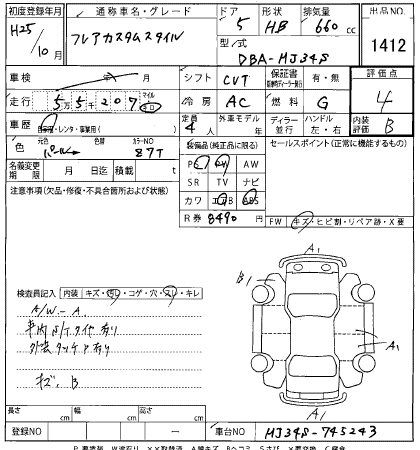 初度登録年月 通称車名・グレード ドア 形状 排気量 出品NO.
H25/10月 フレアカスタムスタイル 5 HB 660cc 1412
型/式 DBA-MJ34S
車検 年 月 シフト CVT 保証書 有・無 評価点
走行 5万5千207 マイル 冷房 AC 燃料 G 4
車歴 自家用・レンタ・事業用( ) 定員 4人 外車モデル年 ディーラー・並行 ハンドル 左・右 内装評価 B
色 元色 パール 色替 カラーNO 87T
装備品(純正品に限る) セールスポイント(正常に機能するもの)
名義変更期限 月 日迄 積載 t
PS PW AW
SR TV ナビ
カワ エアB ABS
注意事項(欠品・修復・不具合箇所および状態)
R券 8490円
FW キズ・ヒビ割・リペア跡・X要
A1
B1
A1
A1
検査員記入 内装 キズ・汚レ・コゲ・穴・スレ・キレ
A/W-A
車内S/Tタイヤ有り
外装タッチア有り
キズ、B
長さ cm 幅 cm 高さ cm
登録NO ー 車台NO MJ34S-745243